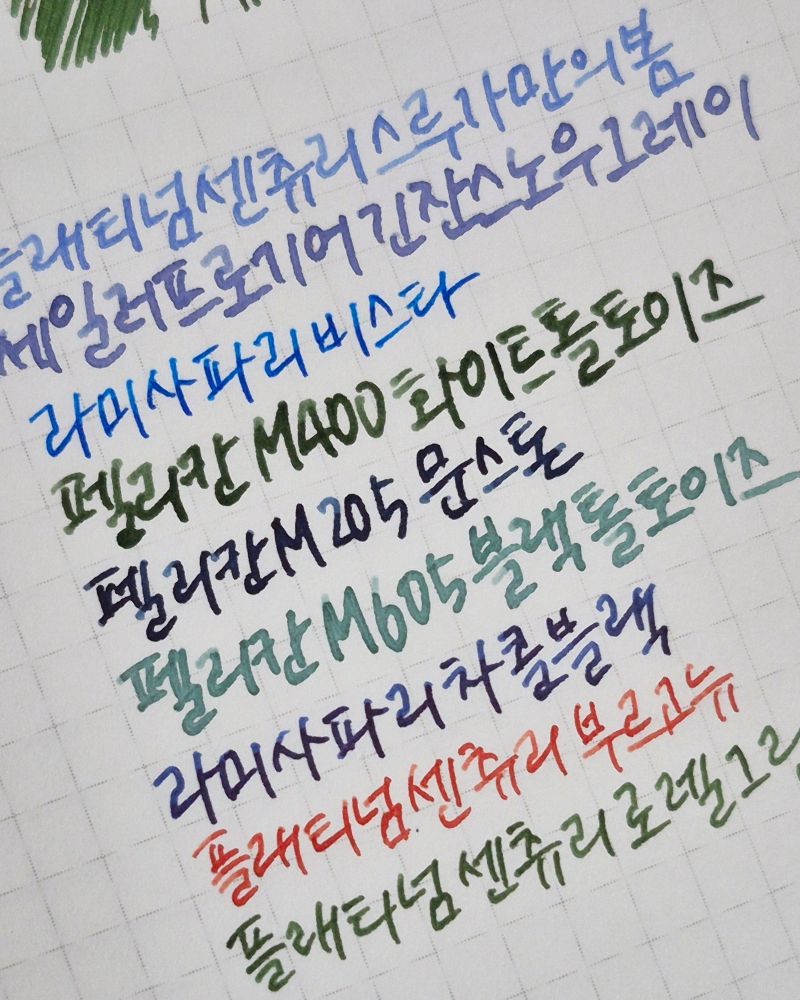 플래티넘 센츄리 스루가만의 봄
세일러 프로기어 긴잔 스노우 그레이
라미 사파리 비스타
펠리칸 M400 화이트 톨토이즈
펠리칸 M205 문스톤
펠리칸 M605 블랙 톨토이즈
라미 사파리 차콜블랙
플래티넘 센츄리 부르고뉴
플래티넘 센츄리 로렐그린